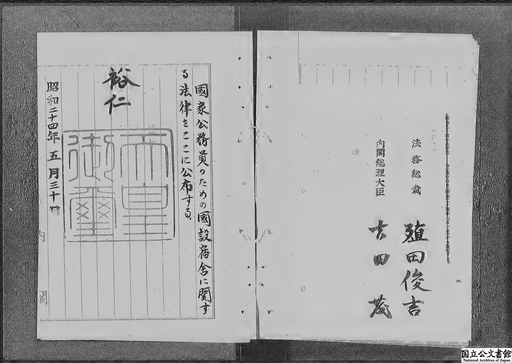 國家公務員のための國設宿舎に関す
る法律をここに公布する。
裕仁
天皇
御璽
昭和二十四年五月三十日
内閣
法務総裁
殖田俊吉
内閣総理大臣
吉田茂
国立公文書館
National Archives of Japan